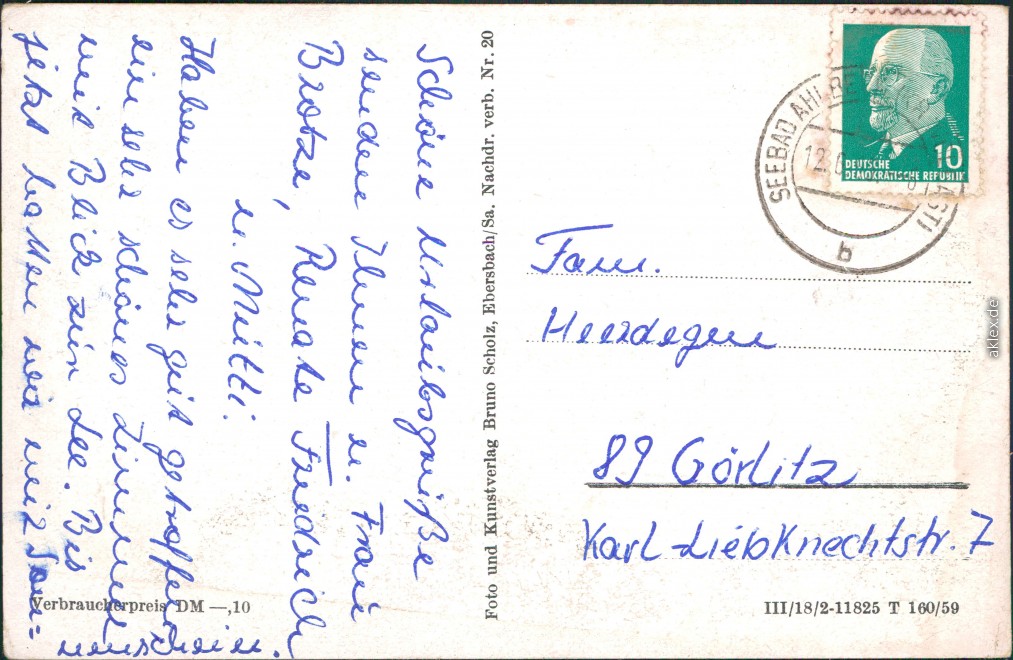 Schöne Urlaubsgrüße
senden Ihnen u. Frau
Brotze, Renate Friedrich
u. Mutti.
Haben es sehr gut getroffen
ein sehr schönes Zimmer
mit Blick zur See. Bis
jetzt hatten wir viel Son=
nenschein.
Verbraucherpreis DM —,10
Foto und Kunstverlag Bruno Scholz, Ebersbach/Sa. Nachdr. verb. Nr. 20
DEUTSCHE
DEMOKRATISCHE REPUBLIK
10
SEEBAD AHLBE
12.
b
Fam.
Heerdegen
89 Görlitz
Karl-Liebknechtstr. 7
III/18/2-11825 T 160/59
aklex.de